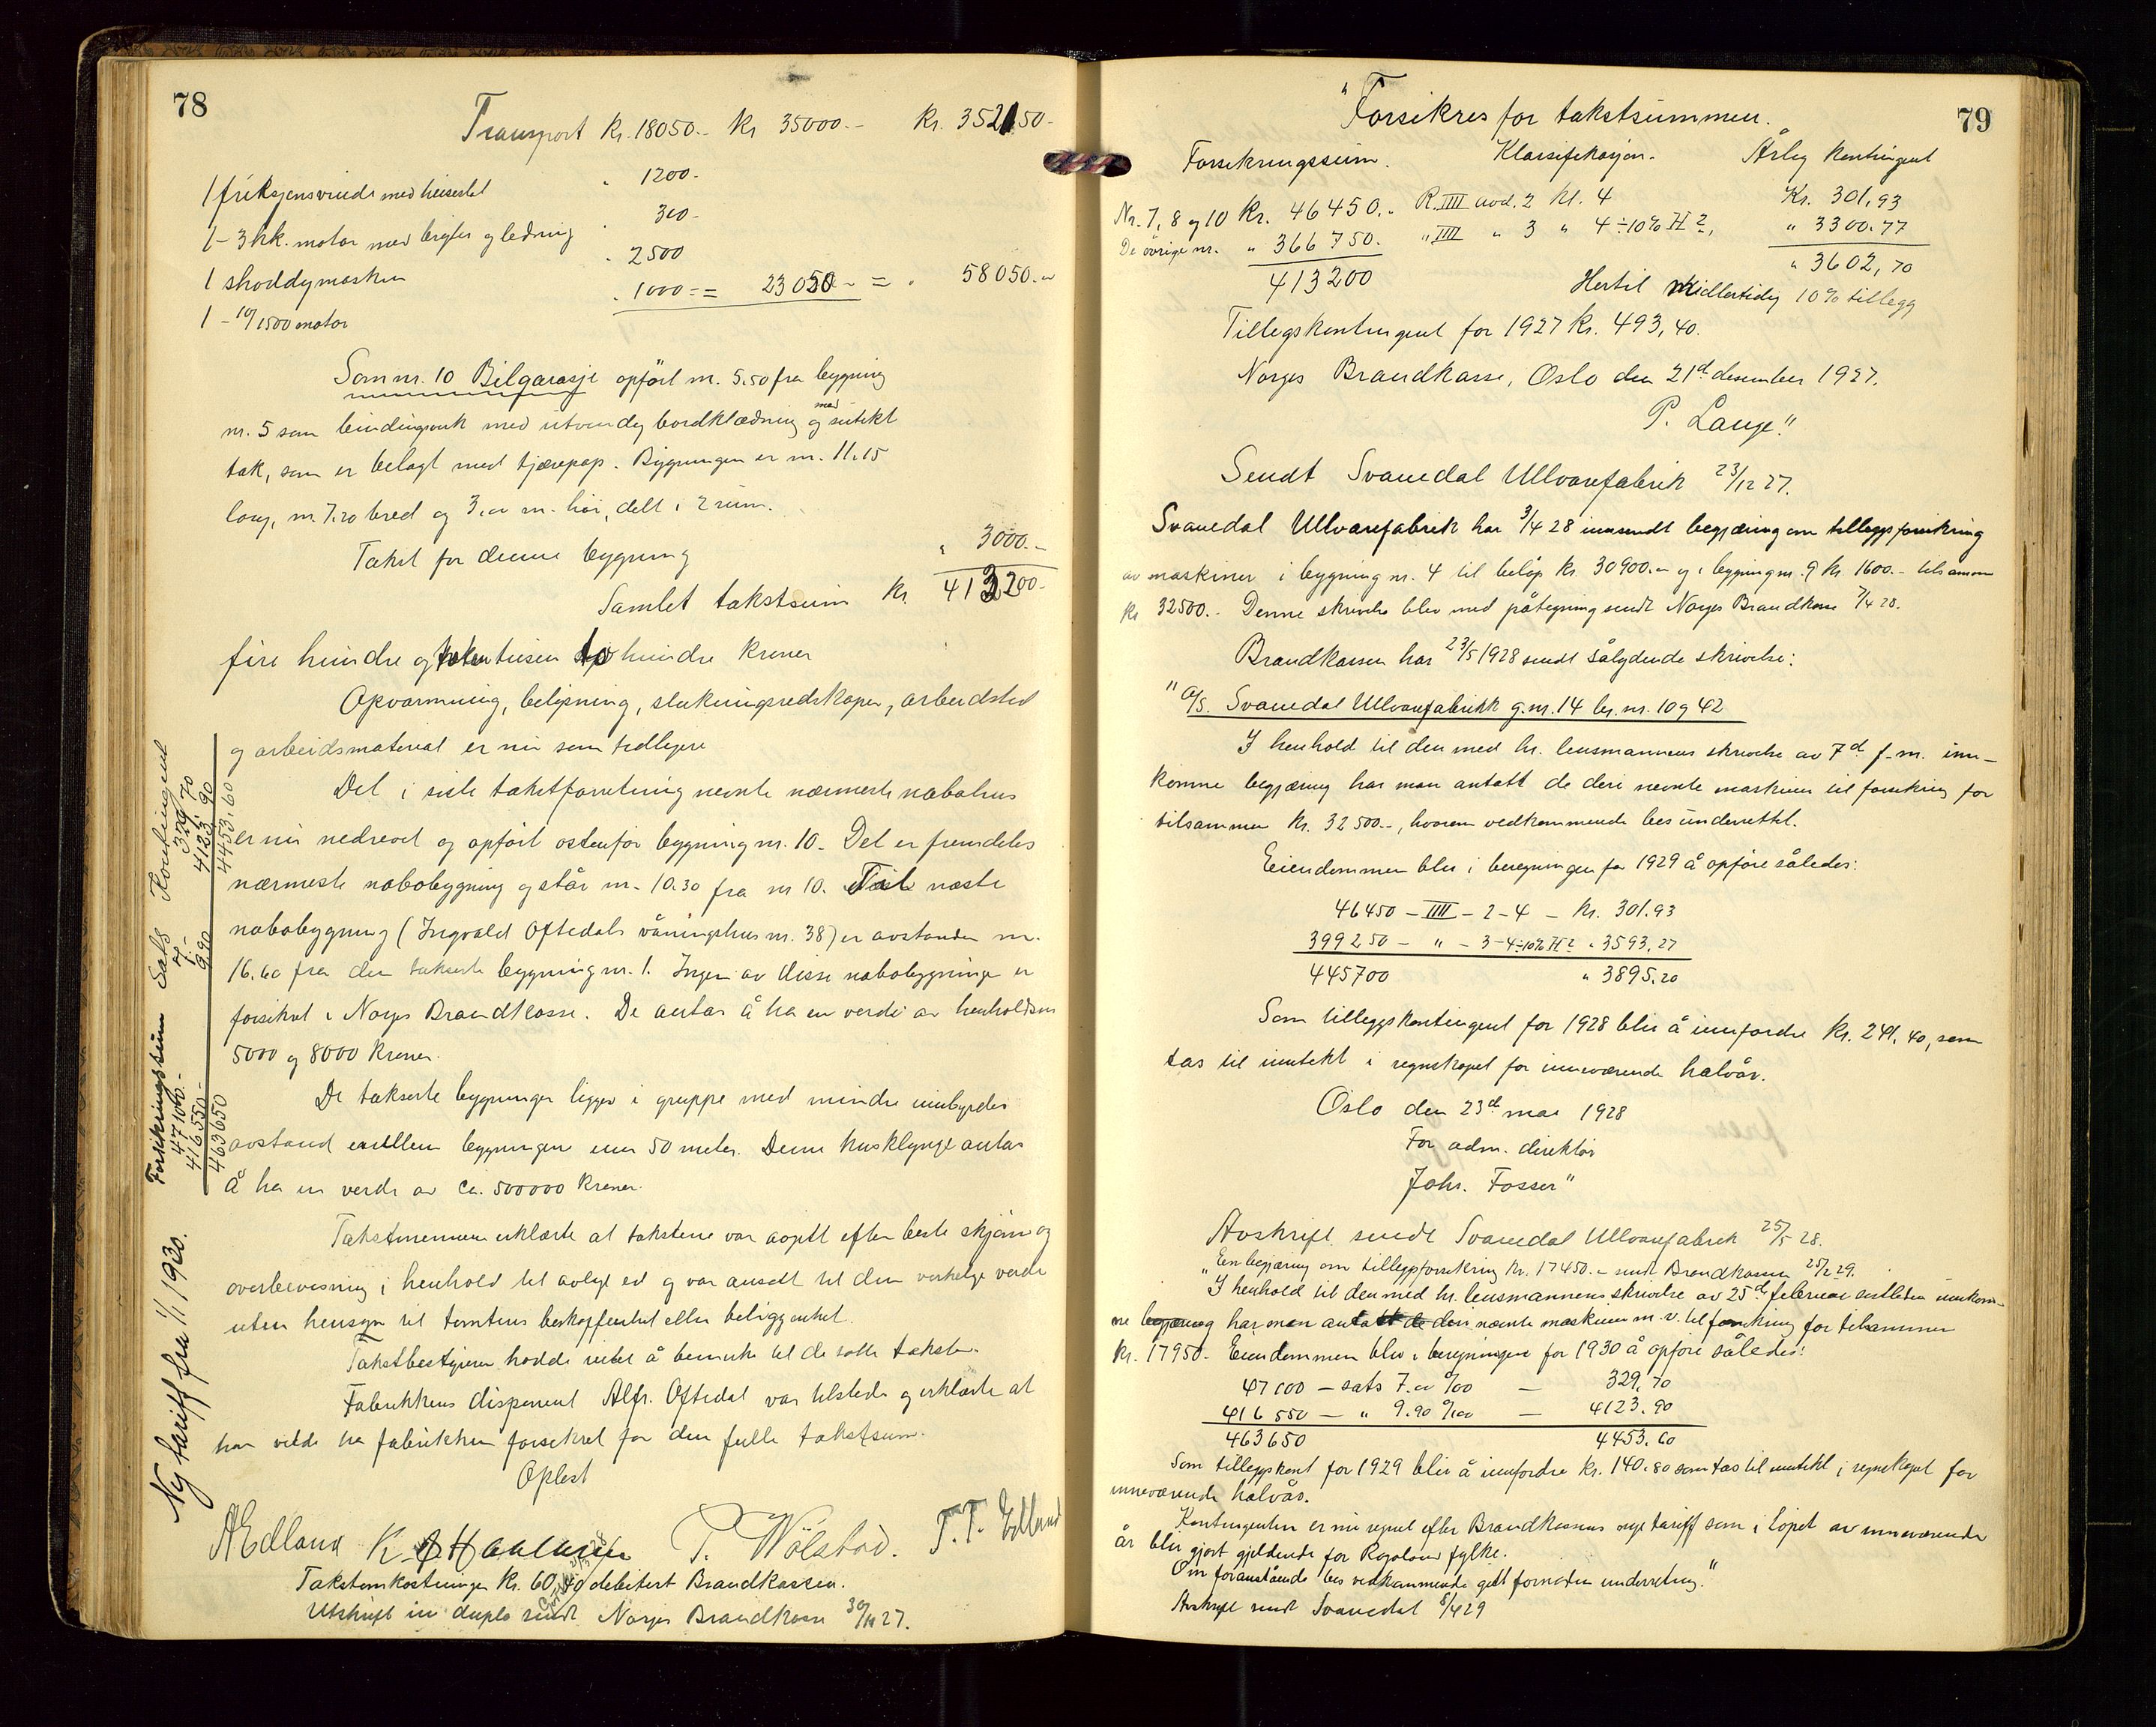 78
Transport Kr. 18050.- Kr 35000.- Kr. 352150-
1 friksjonsvinde med heisestol " 1200-
1 - 3 hk. motor med bryter og ledning " 300-
1 shoddymaskin " 2500
1 - 10/1500 motor " 1000 = = 23050.- = " 58050.-
Som nr. 10 Bilgarasje opført m. 5.50 fra bygning
nr. 5 som bindingsverk med utvendig bordklædning og med
tak, som er belagt med tjærepap. Bygningen er m. 11.15
lang, m. 7.20 bred og 3.00 m. høi, delt i 2 rum.
Takst for denne bygning " 3000.-
Samlet takstsum Kr. 413200-
fire hundre og tretten tusen to hundre kroner
Opvarmning, belysning, slukningsredskaper, arbeidstid
og arbeidsmaterial er nu som tidligere
Det i siste takstforretning nevnte nærmeste nabohus
er nu nedrevet og opført østenfor bygning nr. 10. Det er fremdeles
nærmeste nabobygning og står m. 10.30 fra nr 10. Til næste
nabobygning (Ingvald Oftedals våningshus nr. 38) er avstanden m.
16.60 fra den takserte bygning nr. 1. Ingen av disse nabobygninger er
forsikret i Norges Brandkasse. De antas å ha en verdi av henholdsvis
5000 og 8000 kroner.
De takserte bygninger ligger i gruppe med mindre innbyrdes
avstand mellem bygningene enn 50 meter. Denne husklynge antas
å ha en verdi av ca. 500000 kroner.
Takstmennene erklærte at takstene var avgitt efter beste skjønn og
overbevisning i henhold til avlagt ed og var ansatt til den virkelige verdi
uten hensyn til tomtens beskaffenhet eller beliggenhet.
Takstbestyreren hadde intet å bemerke til de satte takster.
Fabrikkens disponent Alfr. Oftedal var tilstede og erklærte at
han vilde ha fabrikken forsikret for den fulle takstsum.
Oplest
A Edland K. P. Wølstad. T. T. Edland
Takstomkostninger Kr. 60,40 debitert Brandkassen.
Utskrift in duplo sendt Norges Brandkasse 30/11 27.
Ny tariff fra 1/1 1930.
Forsikringssum Sats Kontingent
47100.- 7.- 329,70
416550.- 9.90 4123,90
463650 4453,60
79
"Forsikres for takstsummen.
Forsikringssum. Klassifikasjon. Årlig kontingent
Nr. 7, 8 og 10 Kr. 46450.- R. IIII avd. 2 kl. 4 Kr. 301,93
De øvrige nr. " 366750. " IIII " 3 " 4 ÷ 10% H 2, " 3300.77
413200 " 3602,70
Hertil midlertidig 10% tillegg
Tillegskontingent for 1927 Kr. 493,40.
Norges Brandkasse, Oslo den 21d desember 1927.
P. Lange."
Sendt Svanedal Ullvarefabrik 23/12 27.
Svanedal Ullvarefabrik har 3/4 28 innsendt begjæring om tilleggsforsikring
av maskiner i bygning nr. 4 til beløp Kr. 30900.- og i bygning nr. 9 Kr. 1600.- tilsammen
Kr 32500.- Denne skrivelse blev med påtegning sendt Norges Brandkasse 7/4 28.
Brandkassen har 23/5 1928 sendt sålydende skrivelse:
" A/S. Svanedal Ullvarefabrikk g.nr. 14 br. nr. 10 og 42
I henhold til den med hr. lensmannens skrivelse av 7d f.m. inn-
komne begjæring har man antatt de deri nevnte maskiner til forsikring for
tilsammen Kr. 32500.-, hvorom vedkommende bes underrettet.
Eiendommen blir i beregningen for 1929 å opføre således:
46450 - IIII - 2 - 4 - Kr. 301.93
399250 - " - 3 - 4 ÷ 10% H 2 " 3593,27
445700 " 3895.20
Som tilleggskontingent for 1928 blir å innfordre Kr. 241,40, som
tas til inntekt i regnskapet for inneværende halvår.
Oslo den 23d mai 1928
For adm. direktør
Johs. Fosser"
Avskrift sendt Svanedal Ullvarefabrik 25/5 28.
"En begjæring om tilleggsforsikring Kr. 17450.- sendt Brandkassen 25/2 29.
I henhold til den med hr. lensmannens skrivelse av 25d februar sistleden innkom-
ne begjæring har man antatt de deri nevnte maskiner m. v. til forsikring for tilsammen
Kr. 17950.- Eiendommen blir i beregningen for 1930 å opføre således:
47100 - sats 7.- ‰ - 329,70
416550 - " 9.90 ‰ - 4123.90
463650 4453.60
Som tilleggskont for 1929 blir å innfordre Kr. 140.80 som tas til inntekt i regnskapet for
inneværende halvår.
Kontingenten er nu regnet efter Brandkassens nye tariff som i løpet av inneværende
år blir gjort gjeldende for Rogaland fylke.
Om foranstående bes vedkommende gitt fornøden underretning."
Avskrift sendt Svanedal 8/4 29